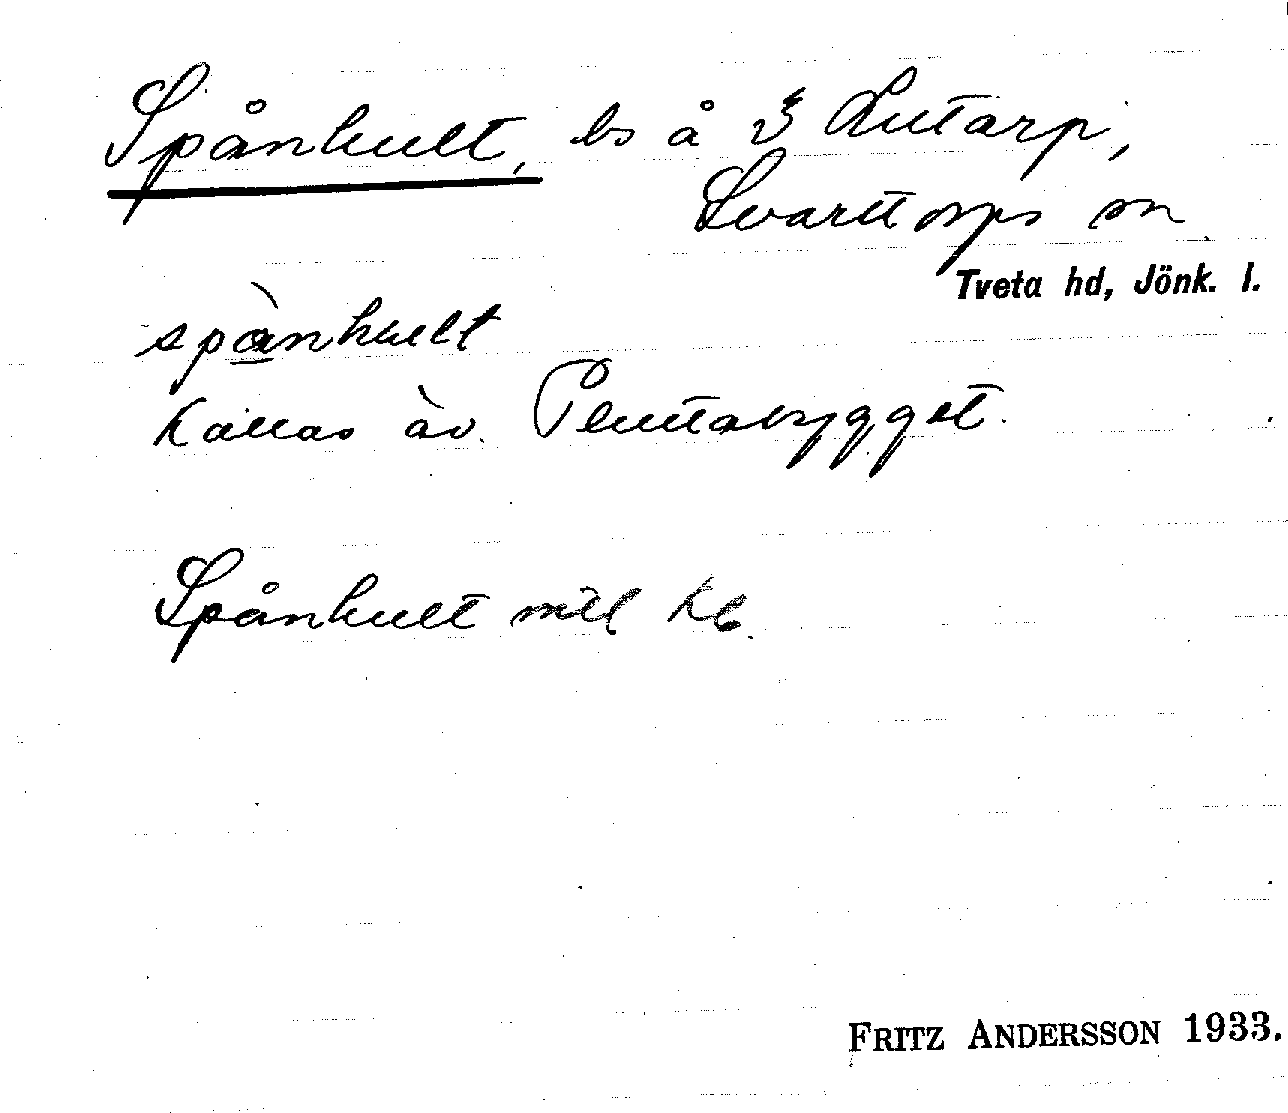 Spånhult, ls å 3 Lutarp,
Svarttorps sn.
Tveta hd, Jönk. l.
spånhult
Kallas äv. Pluttabygget.
Spånhult mtl Kb.
FRITZ ANDERSSON 1933.